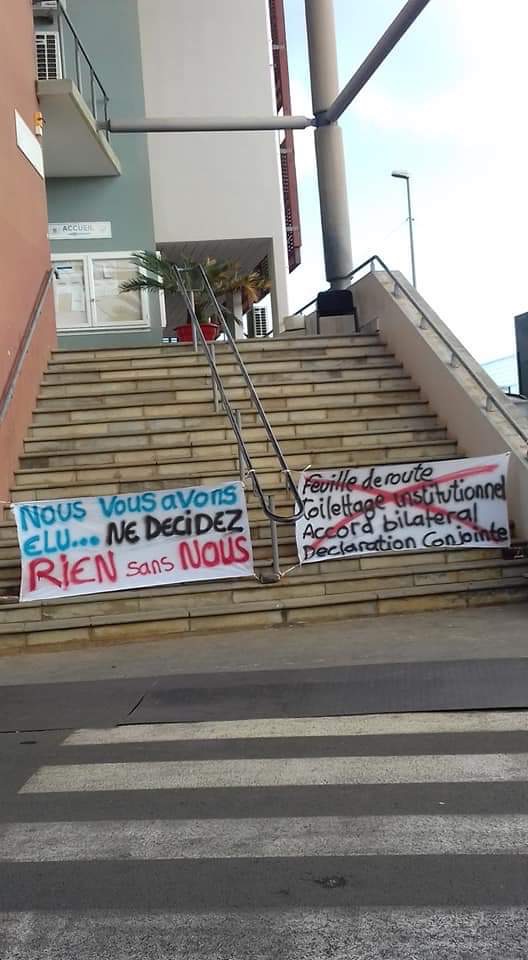 ACCUEIL
NOUS VOUS AVONS
ELU... NE DECIDEZ
RIEN sans NOUS
Feuille de route
Toilettage institutionnel
Accord bilateral
Declaration Conjointe